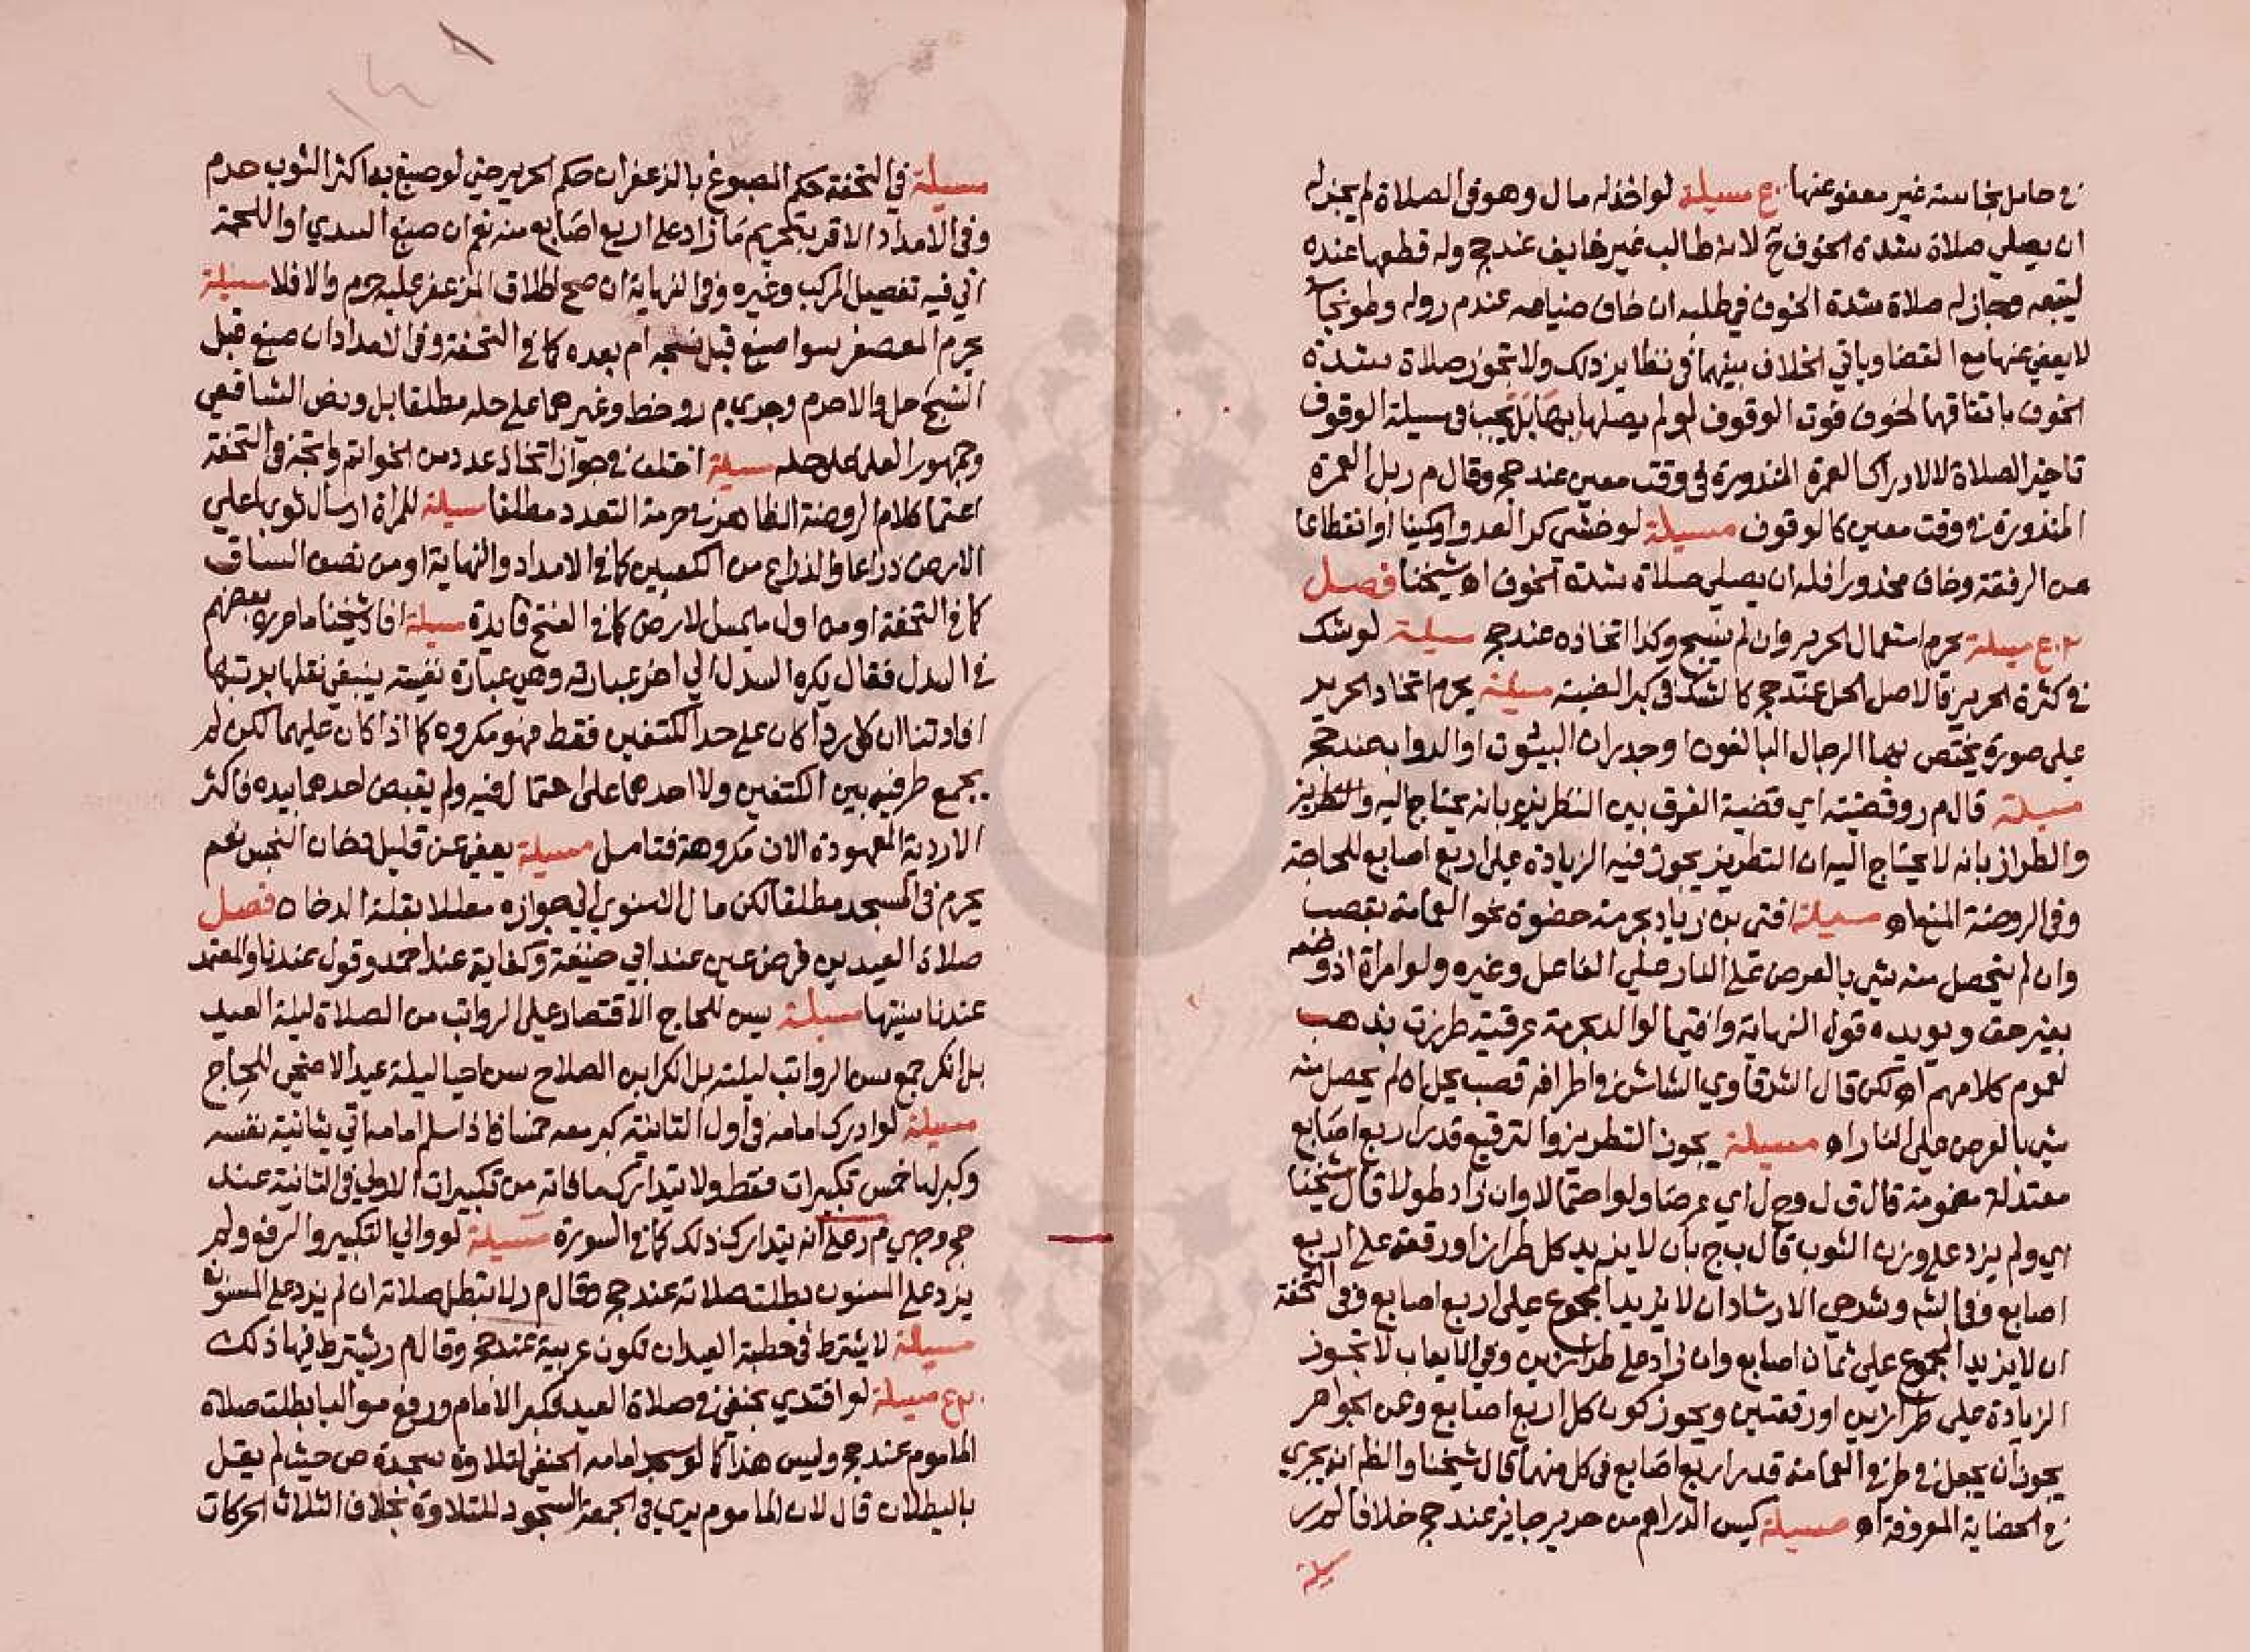 في حامل نجاسة غير معفو عنها ع مسيلة لو اخذ له مال وهو في الصلاة لم يجز له
ان يصلي صلاة شدة الخوف ح لانه طالب غير خايف عند حج وله قطعها عنده
ليتبعه وجاز له صلاة شدة الخوف في طلبه ان خاف ضياعه عند م ر وله وطو نجاسة
لا يعفى عنها مع القضا وياتي الخلاف بينهما في نظاير ذلك ولا تجوز صلاة شدة
الخوف باتفاقهما لخوف فوت الوقوف لو لم يصلها بها بل يجب في مسيلة الوقوف
تاخير الصلاة لا لادراك العمرة المنذورة في وقت معين عند حج وقال م ر بل العمرة
المنذورة في وقت معين كالوقوف مسيلة لو خشي كر العدو او كمينا او انقطاعا
عن الرفقة وخاف محذورا فله ان يصلي صلاة شدة الخوف اه شيخنا فصل
ع مسيلة يحرم استعمال الحرير وان لم ينسج وكذا اتخاذه عند حج مسيلة لو شك
في كثرة الحرير فالاصل الحل عند حج كالشك في كبر الضبة مسيلة يحرم اتخاذ الحرير
على صورة يختص بها الرجال البالغون او جدران البيوت او الدواب عند حج
مسيلة قال م ر وقضيته اي قضية الفرق بين التطريز بانه يحتاج اليه والتطريز
والطراز بانه لا يحتاج اليه ان التطريز يجوز فيه الزيادة على اربع اصابع للحاجة
وفي الروضة المنع اه مسيلة افتى بن زياد بحرمة حضوة نحو العمامة بقصب
وان لم يتحصل منه شي بالعرض على النار على الفاعل وغيره ولو امراة اذ وضعه
بغير حق ويويده قول النهاية وافتيا الوالد بحرمة عرقية طرزت بذهب
لعموم كلامهم اه لكن قال الشرقاوي الشاش في اطرافه قصب يحل ان لم يحصل منه
شي بالعرض على النار اه مسيلة يجوز التطريز والترقيع قدر اربع اصابع
معتدلة مضمومة قال ق ل وح ل اي عرضا ولو احتمالا وان زاد طولا قال شيخنا
اي ولم يزد على وزن الثوب قال ب ج بان لا يزيد كل طراز او رقعة على اربع
اصابع وفي الشم وشرحي الارشاد ان لا يزيد المجموع على اربع اصابع وفي التحفة
ان لا يزيد المجموع على ثمان اصابع وان زاد على طرازين وفي الايعاب لا تجوز
الزيادة على طرازين او رقعتين ويجوز كون كل اربع اصابع وعن الجواهر
يجوز ان يجعل في طرفي العمامة قدر اربع اصابع في كل منهما قال شيخنا والظ انه يجري
في الحضاية المعروفة اه مسيلة كيس الدراهم من حرير جايز عند حج خلافا لم ر
مسيلة
مسيلة في التحفة حكم المصبوغ بالزعفران حكم الحرير حتى لو صبغ به اكثر الثوب حرم
وفي الامداد الاقرب تحريم ما زاد على اربع اصابع منه نعم ان صبغ السدي او اللحمة
اتى فيه تفصيل المركب وغيره وفي النهاية ان صح اطلاق المزعفر عليه حرم والا فلا مسيلة
يحرم المعصفر سوا صبغ قبل نسجه ام بعده كما في التحفة وفي الامداد ان صبغ قبل
النسج حل والا حرم وجرى م ر وخط وغيرهما على حله مطلقا بل ونص الشافعي
وجمهور العلما على حله مسيلة اختلف في جواز اتخاذ عدد من الخواتم واتجه في التحفة
اعتمادا كلام الروضة الظاهر في حرمة التعدد مطلقا مسيلة للمراة ارسال ثوبها على
الارض ذراعا والذراع من الكعبين كما في الامداد والنهاية او من نصف الساق
كما في التحفة او من اول ما يمس الارض كما في الفتح فايدة مسيلة افاد شيخنا ما حرره بعضهم
في السدل فقال يكره السدل الى اخر عبارته وهي عبارة نفيسة ينبغي نقلها برتبها
افادتنا ان كل ردا كان على حد الكتفين فقط فهو مكروه كما اذا كان عليهما لكن لم
يجمع طرفيه بين الكتفين ولا احدهما على احتمال فيه ولم يقبض احدهما بيده فاكثر
الاردية المعهودة الان مكروهة فتامل مسيلة يعفى عن قليل دخان النجس نعم
يحرم في المسجد مطلقا لكن مال الاسنوي الى جوازه معللا بقلة الدخان فصل
صلاة العيدين فرض عين عند ابي حنيفة وكفاية عند احمد وقول عندنا والمعتمد
عندنا سنيتها مسيلة يسن للحاج الاقتصار على الرواتب من الصلاة ليلة العيد
بل انكر جمع سن الرواتب ليلته بل انكر ابن الصلاح سن احيا ليلة عيد الاضحى للحاج
مسيلة لو ادرك امامه في اول الثانية كبر معه خمسا فاذا سلم امامه اتي بثانية نفسه
وكبر لها خمس تكبيرات فقط ولا يتدارك ما فاته من تكبيرات الاولى في الثانية عند
حج وجرى م ر على انه يتدارك ذلك كما في السورة مسيلة لو والى التكبير والرفع ولم
يزد على المسنون بطلت صلاته عند حج وقال م ر لا تبطل صلاته ان لم يزد على المسنون
مسيلة لا يشترط في خطبة العيد ان تكون عربية عند حج وقال م ر يشترط فيها ذلك
ع مسيلة لو اقتدى بحنفي في صلاة العيد فكبر الامام ورفع مواليا بطلت صلاة
الماموم عند حج وليس هذا كما لو سجد امامه الحنفي لتلاوة سجدة ص حيث لم يقل
بالبطلان قال لان الماموم يرى في الجمعة السجود للتلاوة بخلاف الثلاث الحركات